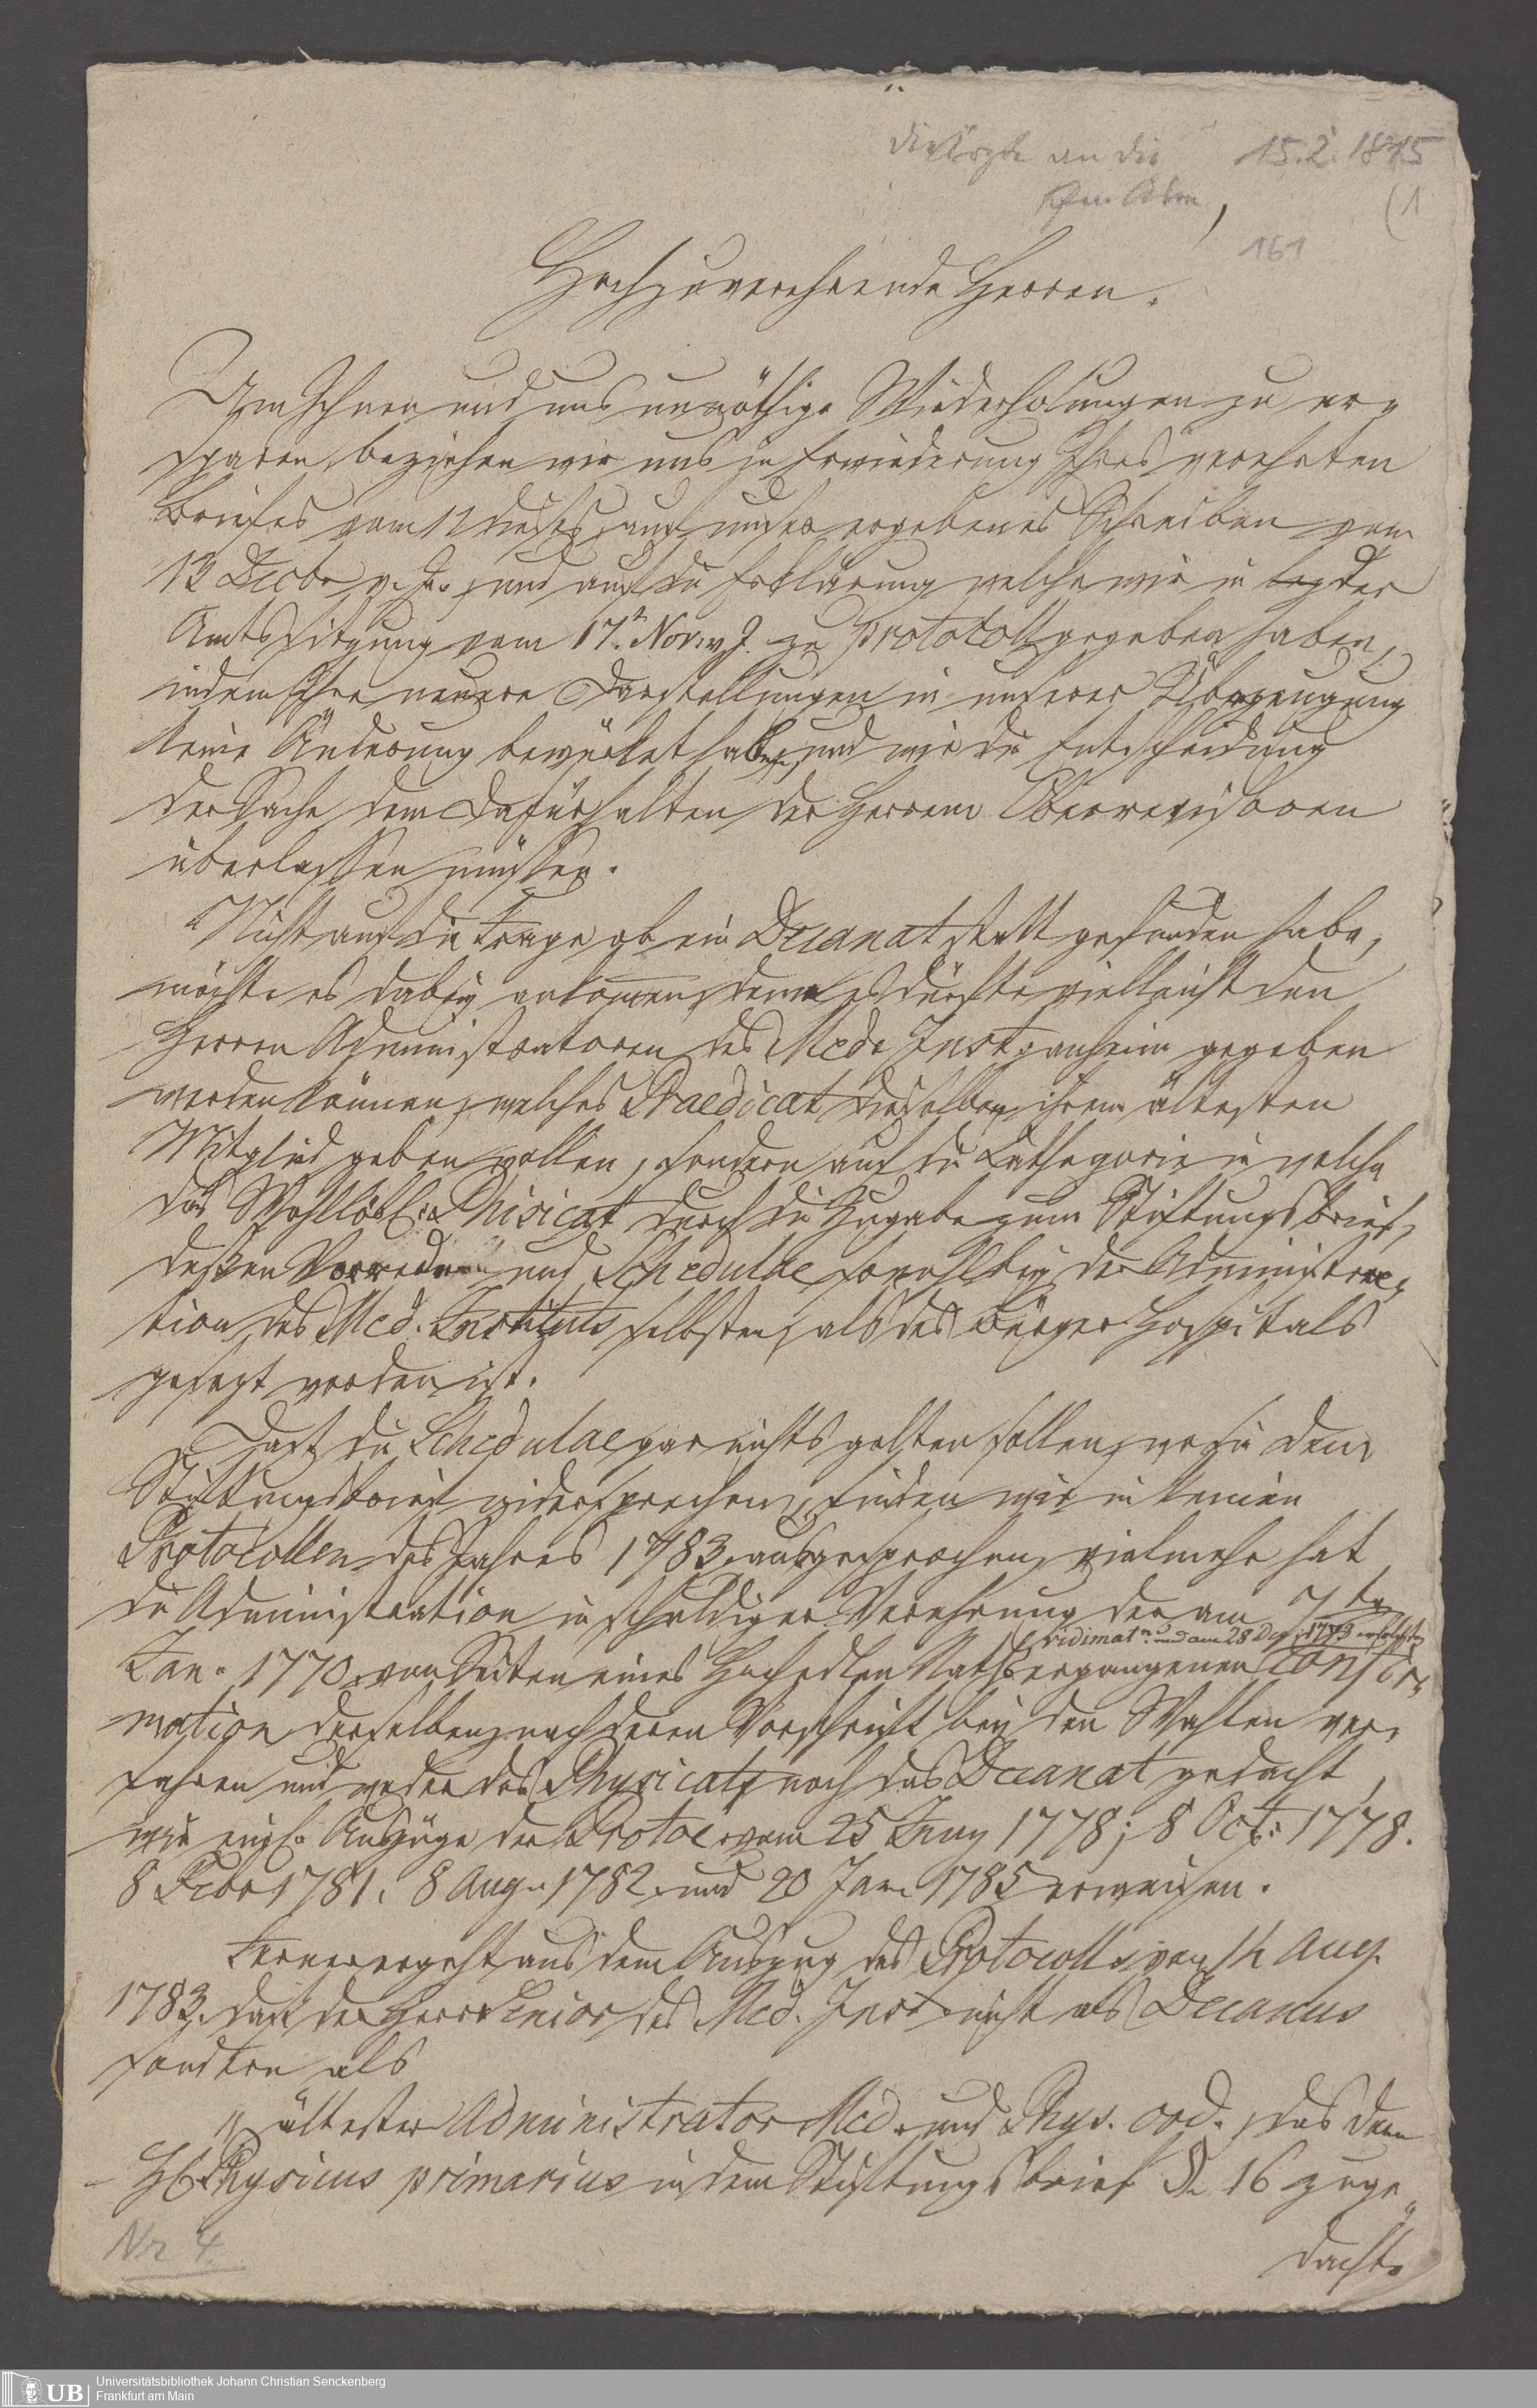 die Ärzte an die 15.2.1815
(1
161
Hochzuverehrende Herren.
Um Ihnen und uns unnöthige Wiederholungen zu er-
sparen, beziehen wir uns in Erwiederung Ihres verehrten
Briefes vom 12 dieses, auf unser ergebenes Schreiben vom
13 Decbr v. J. und auf die Erklärung welche wir in der
Amtssitzung vom 17.t Nov. v. J. zu Protocoll gegeben haben,
indem Ihre neuere Darstellungen in unserer Überzeugung
keine Änderung bewürket haben, und wir die Entscheidung
der Sache dem Dafürhalten der Herren Oberrevisoren
überlassen müssen.
Nicht auf die Frage ob ein Decanat statt gefunden habe,
möchte es dabey ankomen, denn es dürfte vielleicht den
Herren Administratoren des Med. Inst. anheim gegeben
werden können, welches Praedicat dieselben ihrem ältesten
Mitglied geben wollen, sondern auf die Kathegorie in welche
das Wohllöbl. Phisicat durch die Zugabe zum Stiftungsbrief,
dessen Vorrede und Schedulae sowohl bey der Administra-
tion des Med. Instituts selbsten, als des Bürger Hospitals
gesezt worden ist.
Daß die Schedulae gar nichts gelten sollen, wo sie dem
Stiftungsbrief widersprechen, finden wir in keinen
Protocollen des Jahres 1783 ausgesprochen, vielmehr hat
die Administration in schuldiger Verehrung der am 7 ten
vidimatn. und am 28 Dec. 1773 erfolgten
Jan. 1770 von Seiten eines Hochedlen Raths ergangenen Confir-
mation derselben, nach deren Vorschrift bey den Wahlen ver-
fahren und weder das Physicat noch das Decanat gedacht,
wie einige Auszüge der Protoc. vom 25 Juny 1778; 8 Oct. 1778.
8 Febr 1781. 8 Aug. 1782. und 20 Jan. 1785 erweisen.
Ferner ergeht aus dem Auszug des Protocolls vom 14 Aug.
1783. daß der Herr Senior des Med. Inst. nicht als Decanus
sondern als
„ältester Administrator Med. und Phys. ord., das dem
H. Physicus primarius in dem Stiftungsbrief §. 16 zuge-
dachte
Nr 4
UB Universitätsbibliothek Johann Christian Senckenberg
Frankfurt am Main